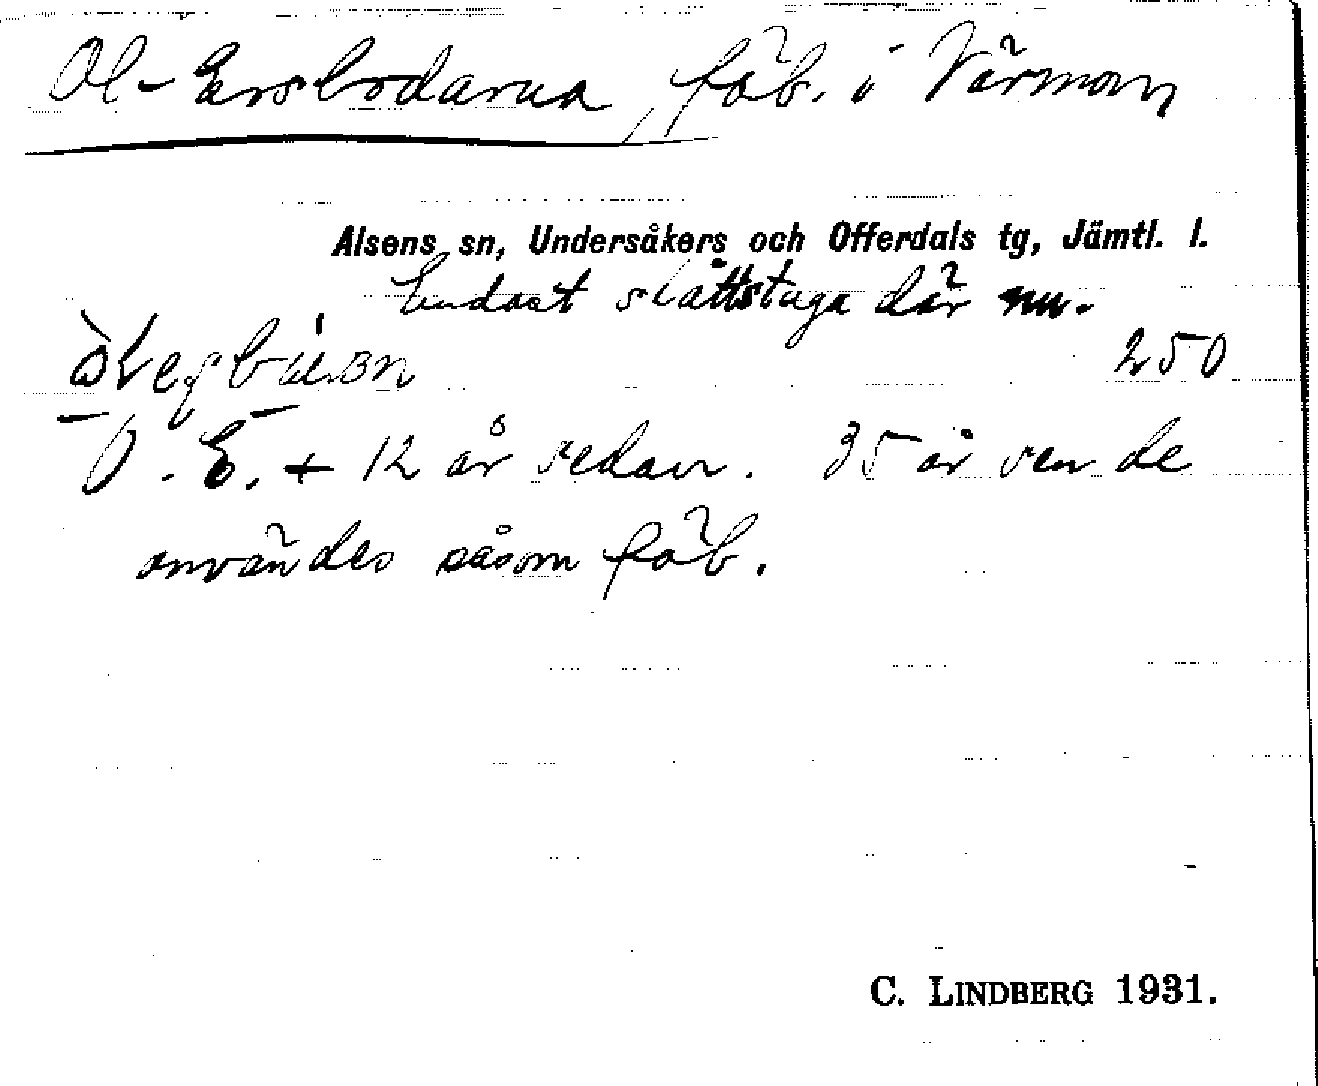 Ol-Ersbodarna, fäb. i Värmon
Alsens sn, Undersåkers och Offerdals tg, Jämtl. l.
Endast slåttstuga där nu.
250
O. E. + 12 år sedan. 35 år sen de
användes såsom fäb.
C. LINDBERG 1931.